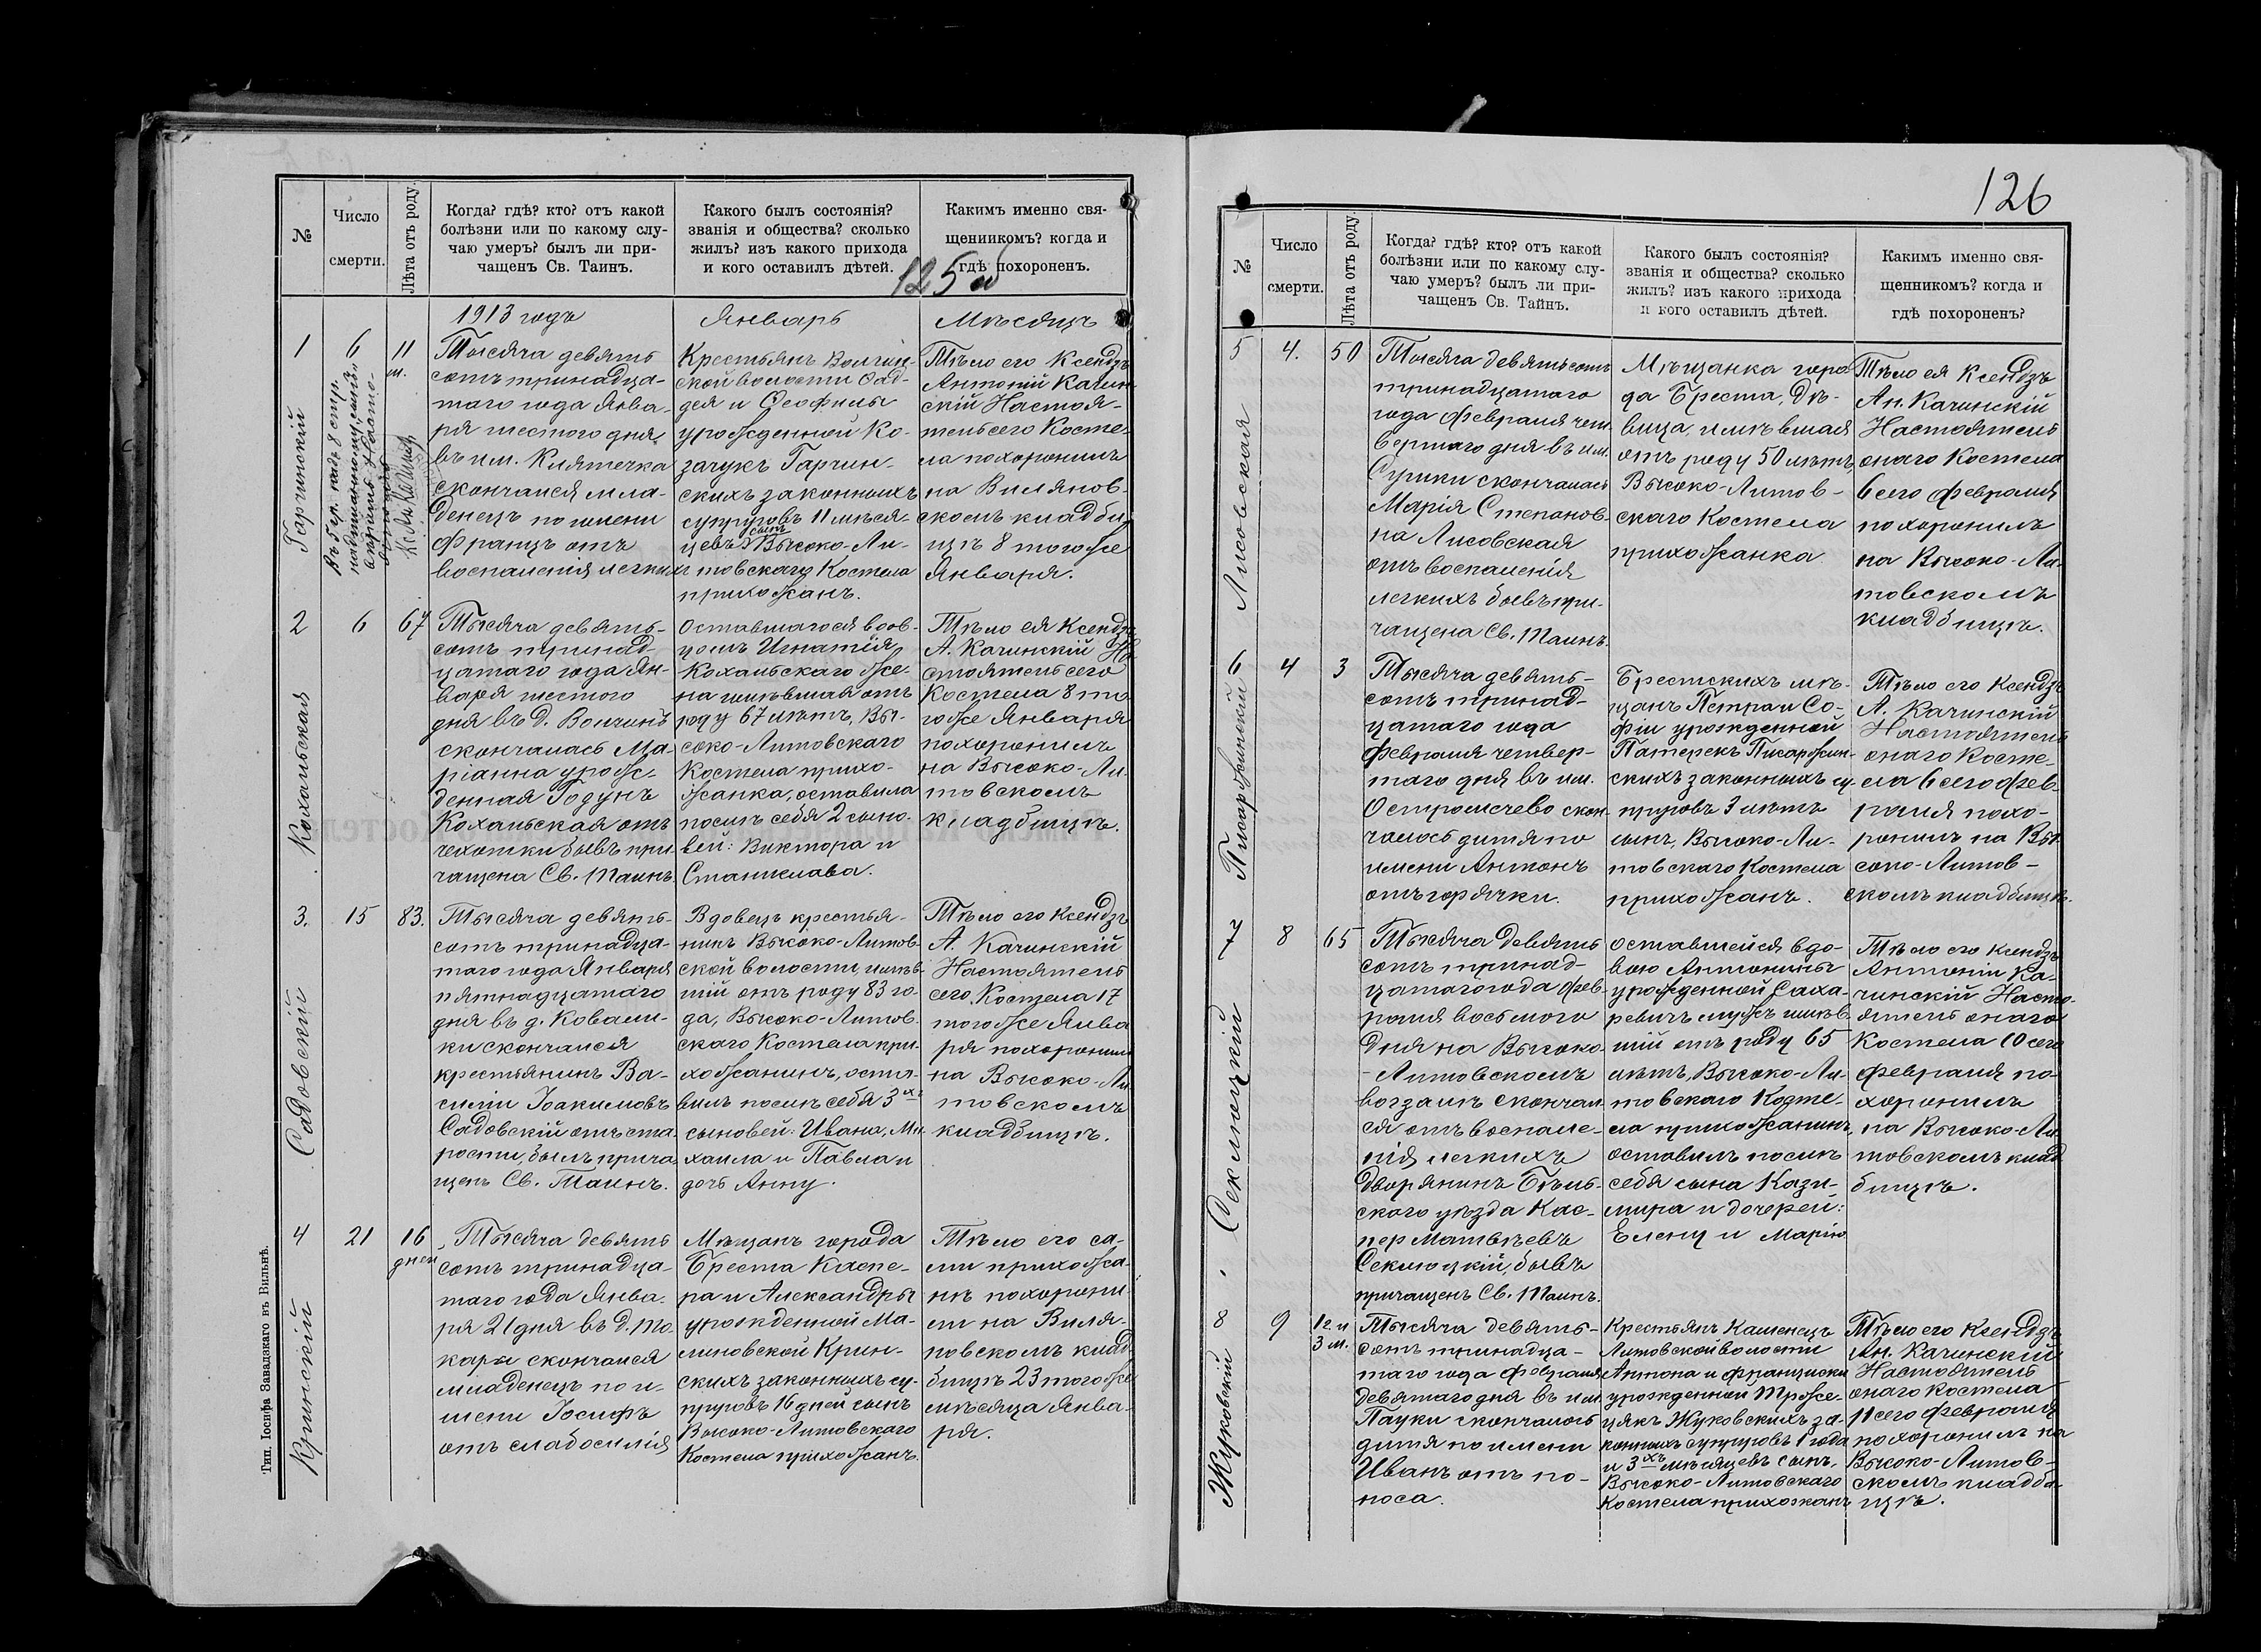 126
№
Число
смерти.
Лѣта отъ роду.
Когда? гдѣ? кто? отъ какой
болѣзни или по какому слу-
чаю умеръ? былъ ли при-
чащенъ Св. Таинъ.
Какого былъ состоянія?
званія и общества? сколько
жилъ? изъ какого прихода
и кого оставилъ дѣтей.
Какимъ именно свя-
щенникомъ? когда и
гдѣ похороненъ.
125
1913 годъ
Январь
Мѣсяцъ
1
Гарчинскій
6
Въ 5 гр. надъ 8 стр.
надписанному „сынъ“
11
м.
Тысяча девять
сотъ тринадца-
таго года Янва-
ря шестого дня
въ им. Клятечка
скончался мла-
денецъ по имени
Францъ отъ
воспаленія легкихъ
Крестьянъ Волчин-
ской волости Фад-
дея и Феофилы
урожденной Ко-
зачукъ Гарчин-
скихъ законныхъ
супруговъ 11 мѣся-
цевъ сынъ Высоко-Ли-
товскаго Костела
прихожанъ.
Тѣло его Ксендзъ
Антоній Качин-
скій Настоя-
тель сего Косте-
ла похоронилъ
на Вилянов-
скомъ кладби-
щѣ 8 того же
Января.
2
Кохальская
6
67
Тысяча девять-
сотъ тринад-
цатаго года Ян-
варя шестого
дня въ д. Волчинъ
скончалась Ма-
ріанна урож-
денная Годунъ
Кохальская отъ
чахотки бывъ при-
чащена Св. Таинъ.
Оставшагося вдов-
цомъ Игнатія
Кохальскаго же-
на имѣвшая отъ
роду 67 лѣтъ, Вы-
соко-Литовскаго
Костела прихо-
жанка, оставила
послѣ себя 2 сыно-
вей: Виктора и
Станислава.
Тѣло ея Ксендзъ
А. Качинскій На-
стоятель сего
Костела 8 то-
го же Января
похоронилъ
на Высоко-Ли-
товскомъ
кладбищѣ.
3.
Садовскій
15
83.
Тысяча девять-
сотъ тринадца-
таго года Января
пятнадцатаго
дня въ д. Ковали-
ки скончался
крестьянинъ Ва-
силій Іоакимовъ
Садовскій отъ ста-
рости, былъ прича-
щенъ Св. Таинъ.
Вдовецъ крестья-
нинъ Высоко-Литов-
ской волости имѣв-
шій отъ роду 83 го-
да, Высоко-Литов-
скаго Костела при-
хожанинъ, оста-
вилъ послѣ себя 3хъ
сыновей: Ивана, Ми-
хаила и Павла и
дочь Анну.
Тѣло его Ксендзъ
А. Качинскій
Настоятель
сего Костела 17
того же Янва-
ря похоронилъ
на Высоко-Ли-
товскомъ
кладбищѣ.
4
Кринскій
21
16
дней
Тысяча девять
сотъ тринадца-
таго года Янва-
ря 21 дня въ д. То-
кари скончался
младенецъ по и-
мени Іосифъ
отъ слабосилія
Мѣщанъ города
Бреста Каспе-
ра и Александры
урожденной Ма-
линовской Крин-
скихъ законныхъ су-
пруговъ 16 дней сынъ
Высоко-Литовскаго
Костела прихожанъ.
Тѣло его са-
ми прихожа-
нѣ похорони-
ли на Виля-
новскомъ клад-
бищѣ 23 того же
мѣсяца Янва-
ря.
Тип. Іосифа Завадзкаго въ Вильнѣ.
№
Число
смерти.
Лѣта отъ роду.
Когда? гдѣ? кто? отъ какой
болѣзни или по какому слу-
чаю умеръ? былъ ли при-
чащенъ Св. Тайнъ.
Какого былъ состоянія?
званія и общества? сколько
жилъ? изъ какого прихода
и кого оставилъ дѣтей.
Какимъ именно свя-
щенникомъ? когда и
гдѣ похороненъ?
5
Лисовская
4.
50
Тысяча девятьсотъ
тринадцатаго
года Февраля чет-
вертаго дня въ им.
Сурики скончалась
Марія Степанов-
на Лисовская
отъ воспаленія
легкихъ бывъ при-
чащена Св. Таинъ.
Мѣщанка горо-
да Бреста, Дѣ-
вица, имѣвшая
отъ роду 50 лѣтъ,
Высоко-Литов-
скаго Костела
прихожанка
Тѣло ея Ксендзъ
Ан. Качинскій
Настоятель
онаго Костела
6 сего Февраля
похоронилъ
на Высоко-Ли-
товскомъ
кладбищѣ.
6
Писаржинскій
4
3
Тысяча девять-
сотъ тринад-
цатаго года
Февраля четвер-
таго дня въ им.
Остромечево скон-
чалось дитя по
имени Антонъ
отъ горячки.
Брестскихъ мѣ-
щанъ Петра и Со-
фіи урожденной
Патерекъ Писаржин-
скихъ законныхъ су-
пруговъ 3 лѣтъ
сынъ, Высоко-Ли-
товскаго Костела
прихожанъ.
Тѣло его Ксендзъ
А. Качинскій
Настоятель
онаго Косте-
ла 6 сего Фев-
раля похо-
ронилъ на Вы-
соко-Литов-
скомъ кладбищѣ.
7
Секлюцкій
8
65
Тысяча девять
сотъ тринад-
цатаго года Фев-
раля восьмого
дня на Высоко-
-Литовскомъ
вогзалѣ скончал-
ся отъ воспале-
нія легкихъ
Дворянинъ Бѣль-
скаго уѣзда Кас-
перъ Матвѣевъ
Секлюцкій, бывъ
причащенъ Св. Таинъ.
Оставшейся вдо-
вою Антонины
урожденной Саха-
ревичъ мужъ имѣв-
шій отъ роду 65
лѣтъ, Высоко-Ли-
товскаго Косте-
ла прихожанинъ,
оставилъ послѣ
себя сына Кази-
мира и дочерей:
Елену и Марію
Тѣло его Ксендзъ
Антоній Ка-
чинскій Насто-
ятель онаго
Костела 10 сего
Февраля по-
хоронилъ
на Высоко-Ли-
товскомъ клад-
бищѣ.
8
Жуковскій
9
1 г. и
3 м.
Тысяча девять-
сотъ тринадца-
таго года Февраля
девятаго дня въ им.
Пауки скончалось
дитя по имени
Иванъ отъ по-
носа.
Крестьянъ Каменецъ
Литовской волости
Антона и Франциски
урожденной Троже-
цякъ Жуковскихъ за-
конныхъ супруговъ 1 года
и 3хъ мѣсяцевъ сынъ,
Высоко-Литовскаго
Костела прихожанъ
Тѣло его Ксендзъ
Ан. Качинскій
Настоятель
онаго Костела
11 сего Февраля
похоронилъ на
Высоко-Литов-
скомъ кладби-
щѣ.